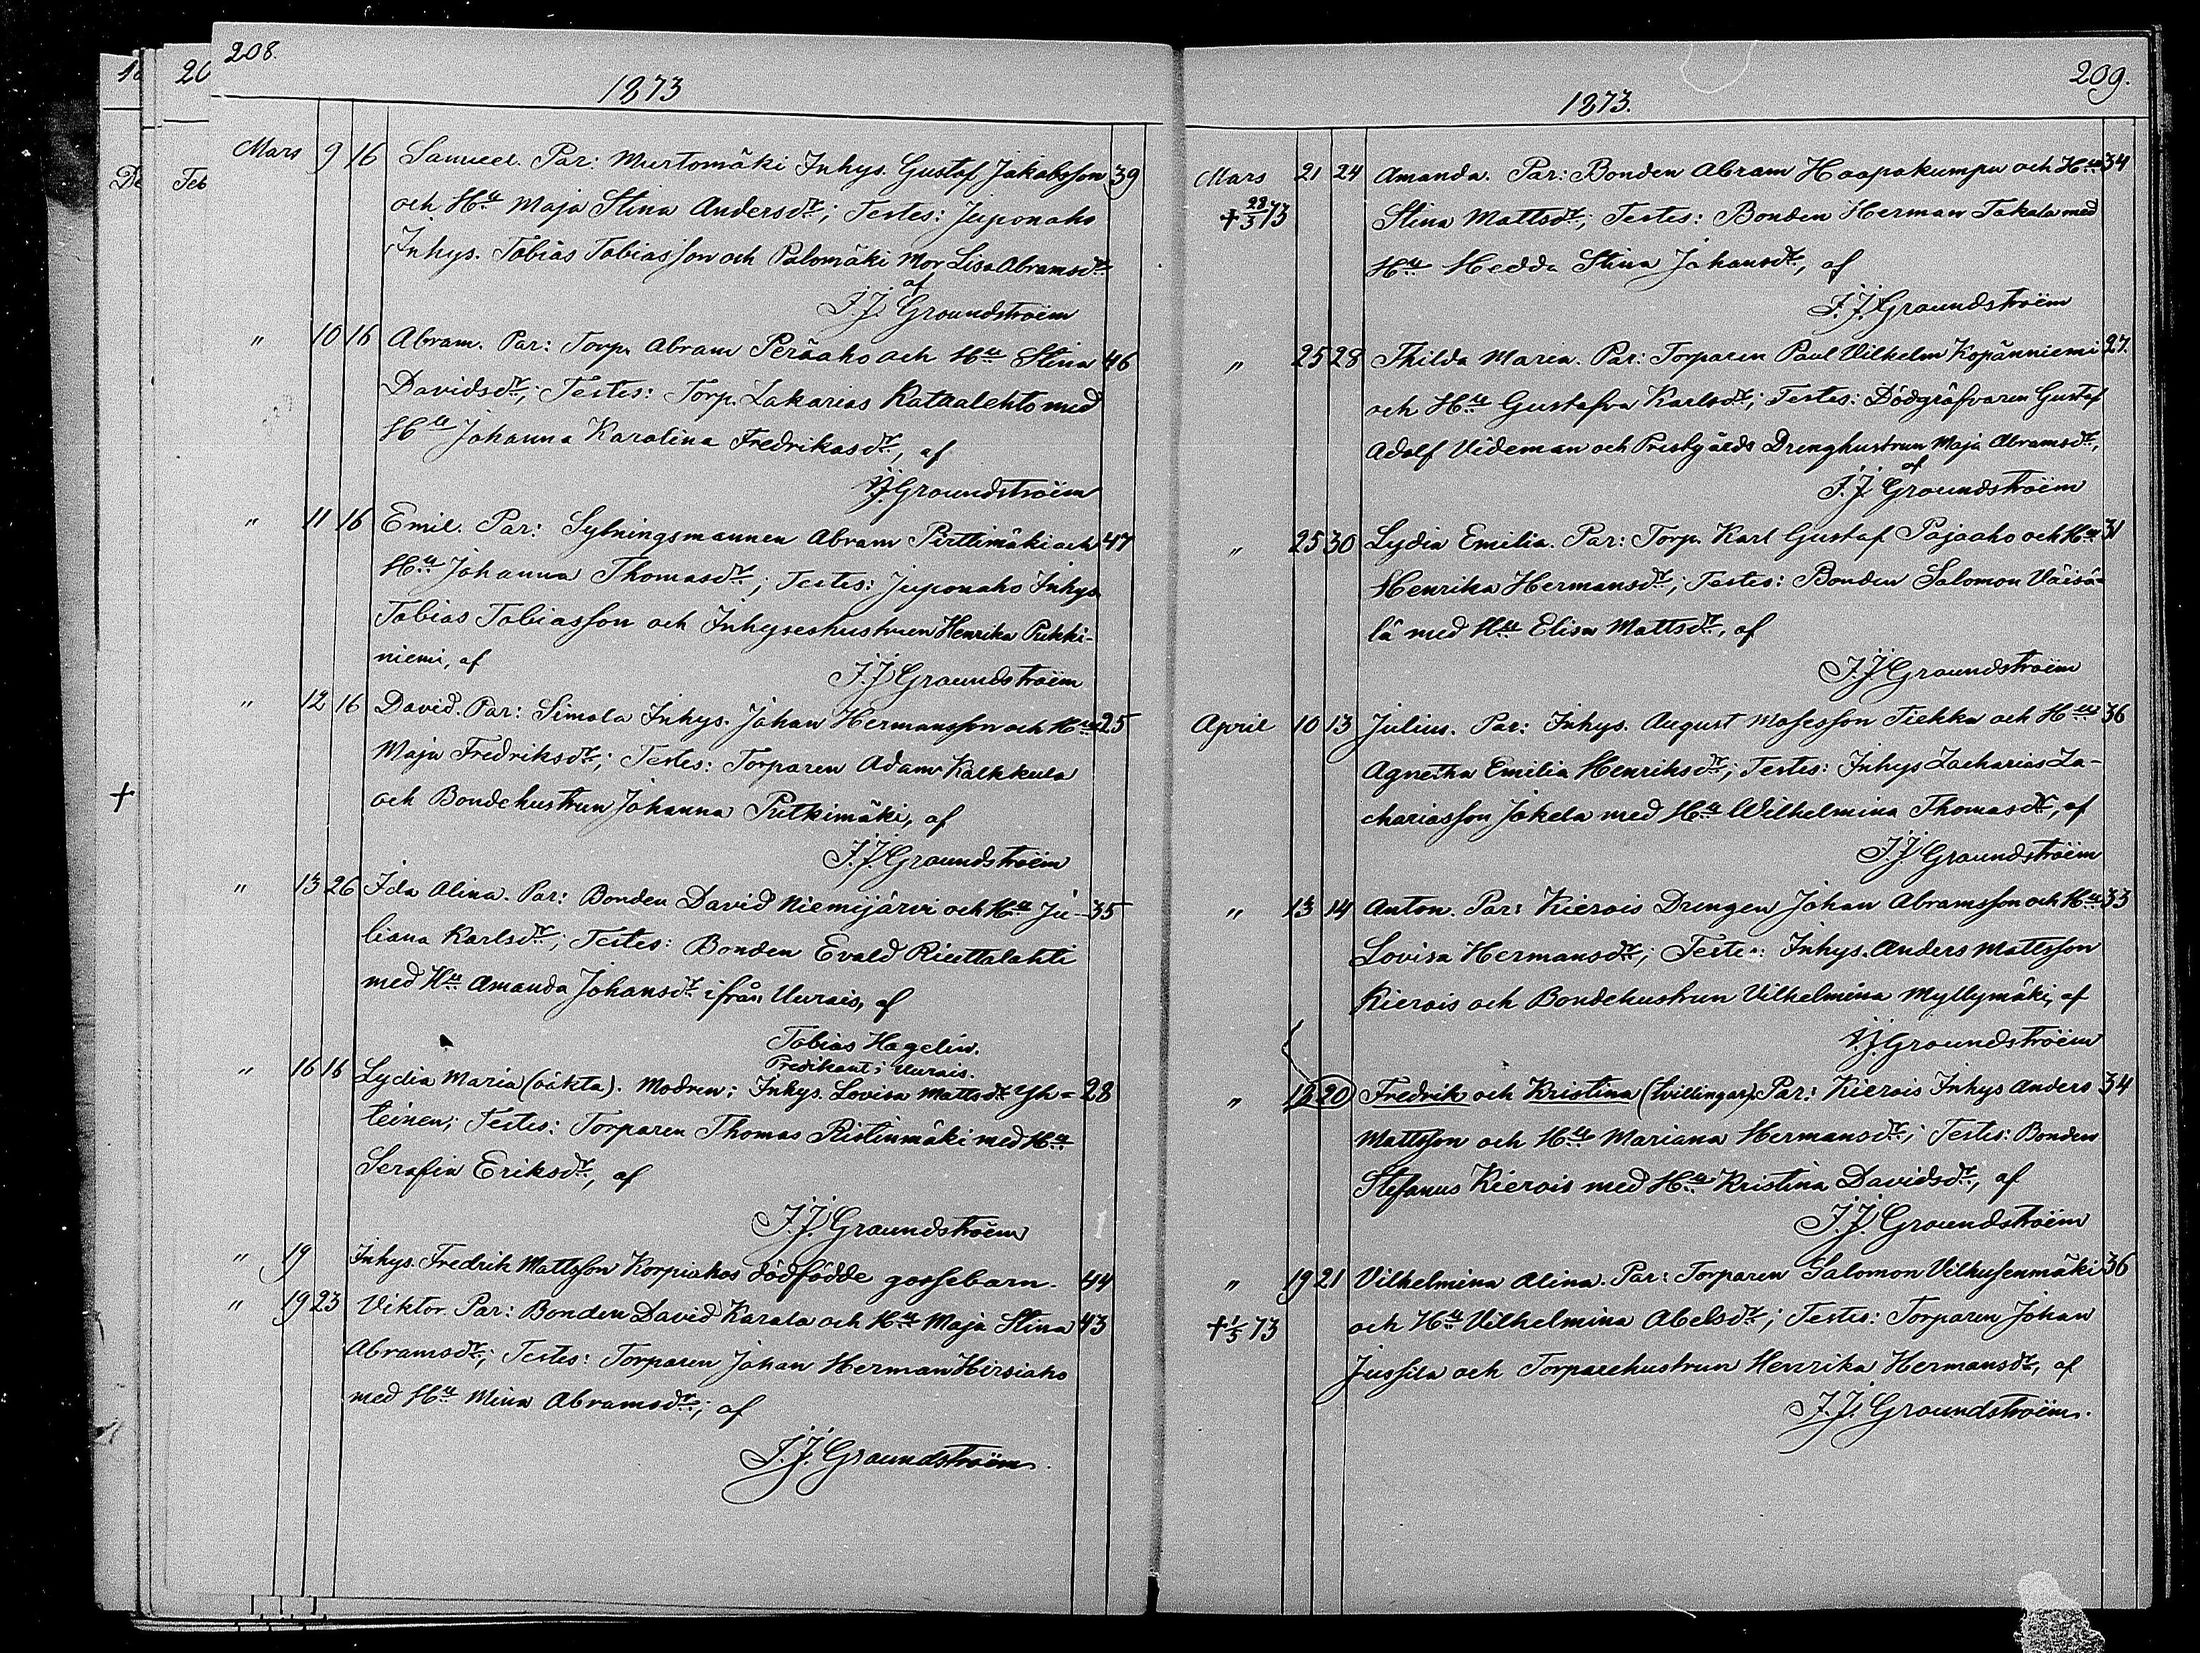 208.
1873
Mars 9 16 Samuel. Par: Murtomäki Inhys. Gustaf Jakobsson 39
och Hu Maja Stina Andersdr; Testes: Juponaho
Inhys. Tobias Tobiasson och Palomäki Mor Lisa Abramsdr
af
J. J. Groundstroëm
" 10 16 Abram. Par: Torp. Abram Peräaho och Hu Stina 46
Davidsdr; Testes: Torp. Zakarias Katralehto med
Hu Johanna Karolina Fredrikasdr, af
J.J. Groundstroëm
" 11 16 Emil. Par: Sytningsmannen Abram Pirttimäki och 47
Hu Johanna Thomasdr; Testes: Juponaho Inhys
Tobias Tobiasson och Inhyseshustrun Henrika Pukki-
niemi, af
J. J. Groundstroëm
" 12 16 David. Par: Simola Inhys. Johan Hermansson och Hu 25
Maja Fredriksdr; Testes: Torparen Adam Kalkkula
och Bondehustrun Johanna Putkimäki, af
J. J. Groundstroëm
" 13 26 Ida Alina. Par: Bonden David Niemijärvi och Hu Ju- 35
liana Karlsdr; Testes: Bonden Evald Riuttalahti
med Hu Amanda Johansdr ifrån Uurais, af
Tobias Hagelin.
Predikant i Uurais.
" 16 16 Lydia Maria (oäkta). Modren: Inhys. Lovisa Mattsdr Yh= 28
teinen; Testes: Torparen Thomas Ristinmäki med Hu
Serafia Eriksdr, af
J. J. Groundstroëm
" 19 Inhys. Fredrik Mattsson Korpiahos dödfödde gossebarn. 44
" 19 23 Viktor. Par: Bonden David Karala och Hu Maja Stina 43
Abramsdr; Testes: Torparen Johan Herman Hirsiaho
med Hu Mina Abramsdr; af
J. J. Groundstroëm.
209.
1873.
Mars 21 24 Amanda. Par: Bonden Abram Haapakumpu och Hu 34
+ 28/3 73 Stina Mattsdr; Testes: Bonden Herman Takala med
Hu Hedda Stina Johansdr, af
J. J. Groundstroëm
" 25 28 Thilda Maria. Par: Torparen Paul Vilhelm Kopänniemi 27.
och Hu Gustafva Karlsdr; Testes: Dödgräfvaren Gustaf
Adolf Videman och Prestgårds Drenghustrun Maja Abramsdr,
af
J. J. Groundstroëm
" 25 30 Lydia Emilia. Par: Torp. Karl Gustaf Pajaaho och Hu 31
Henrika Hermansdr; Testes: Bonden Salomon Väisä-
lä med Hu Elisa Mattsdr, af
J. J. Groundstroëm
April 10 13 Julius. Par: Inhys. August Mosesson Tiehka och Hu 36
Agnetha Emilia Henriksdr; Testes: Inhys Zacharias Za-
chariasson Jokela med Hu Wilhelmina Thomasdr, af
J. J. Groundstroëm
" 13 14 Anton. Par: Kierois Drengen Johan Abramsson och Hu 33
Lovisa Hermansdr; Testes: Inhys. Anders Mattsson
Kierois och Bondehustrun Vilhelmina Myllymäki, af
J. J. Groundstroëm
" 12 20 Fredrik och Kristina (tvillingar). Par: Kierois Inhys Anders 34
Mattsson och Hu Mariana Hermansdr; Testes: Bonden
Stefanus Kierois med Hu Kristina Davidsdr, af
J. J. Groundstroëm
" 19 21 Vilhelmina Alina. Par: Torparen Salomon Vilhusenmäki 36
+ 1/5 73 och Hu Vilhelmina Abelsdr; Testes: Torparen Johan
Jussila och Torparehustrun Henrika Hermansdr, af
J. J. Groundstroëm.